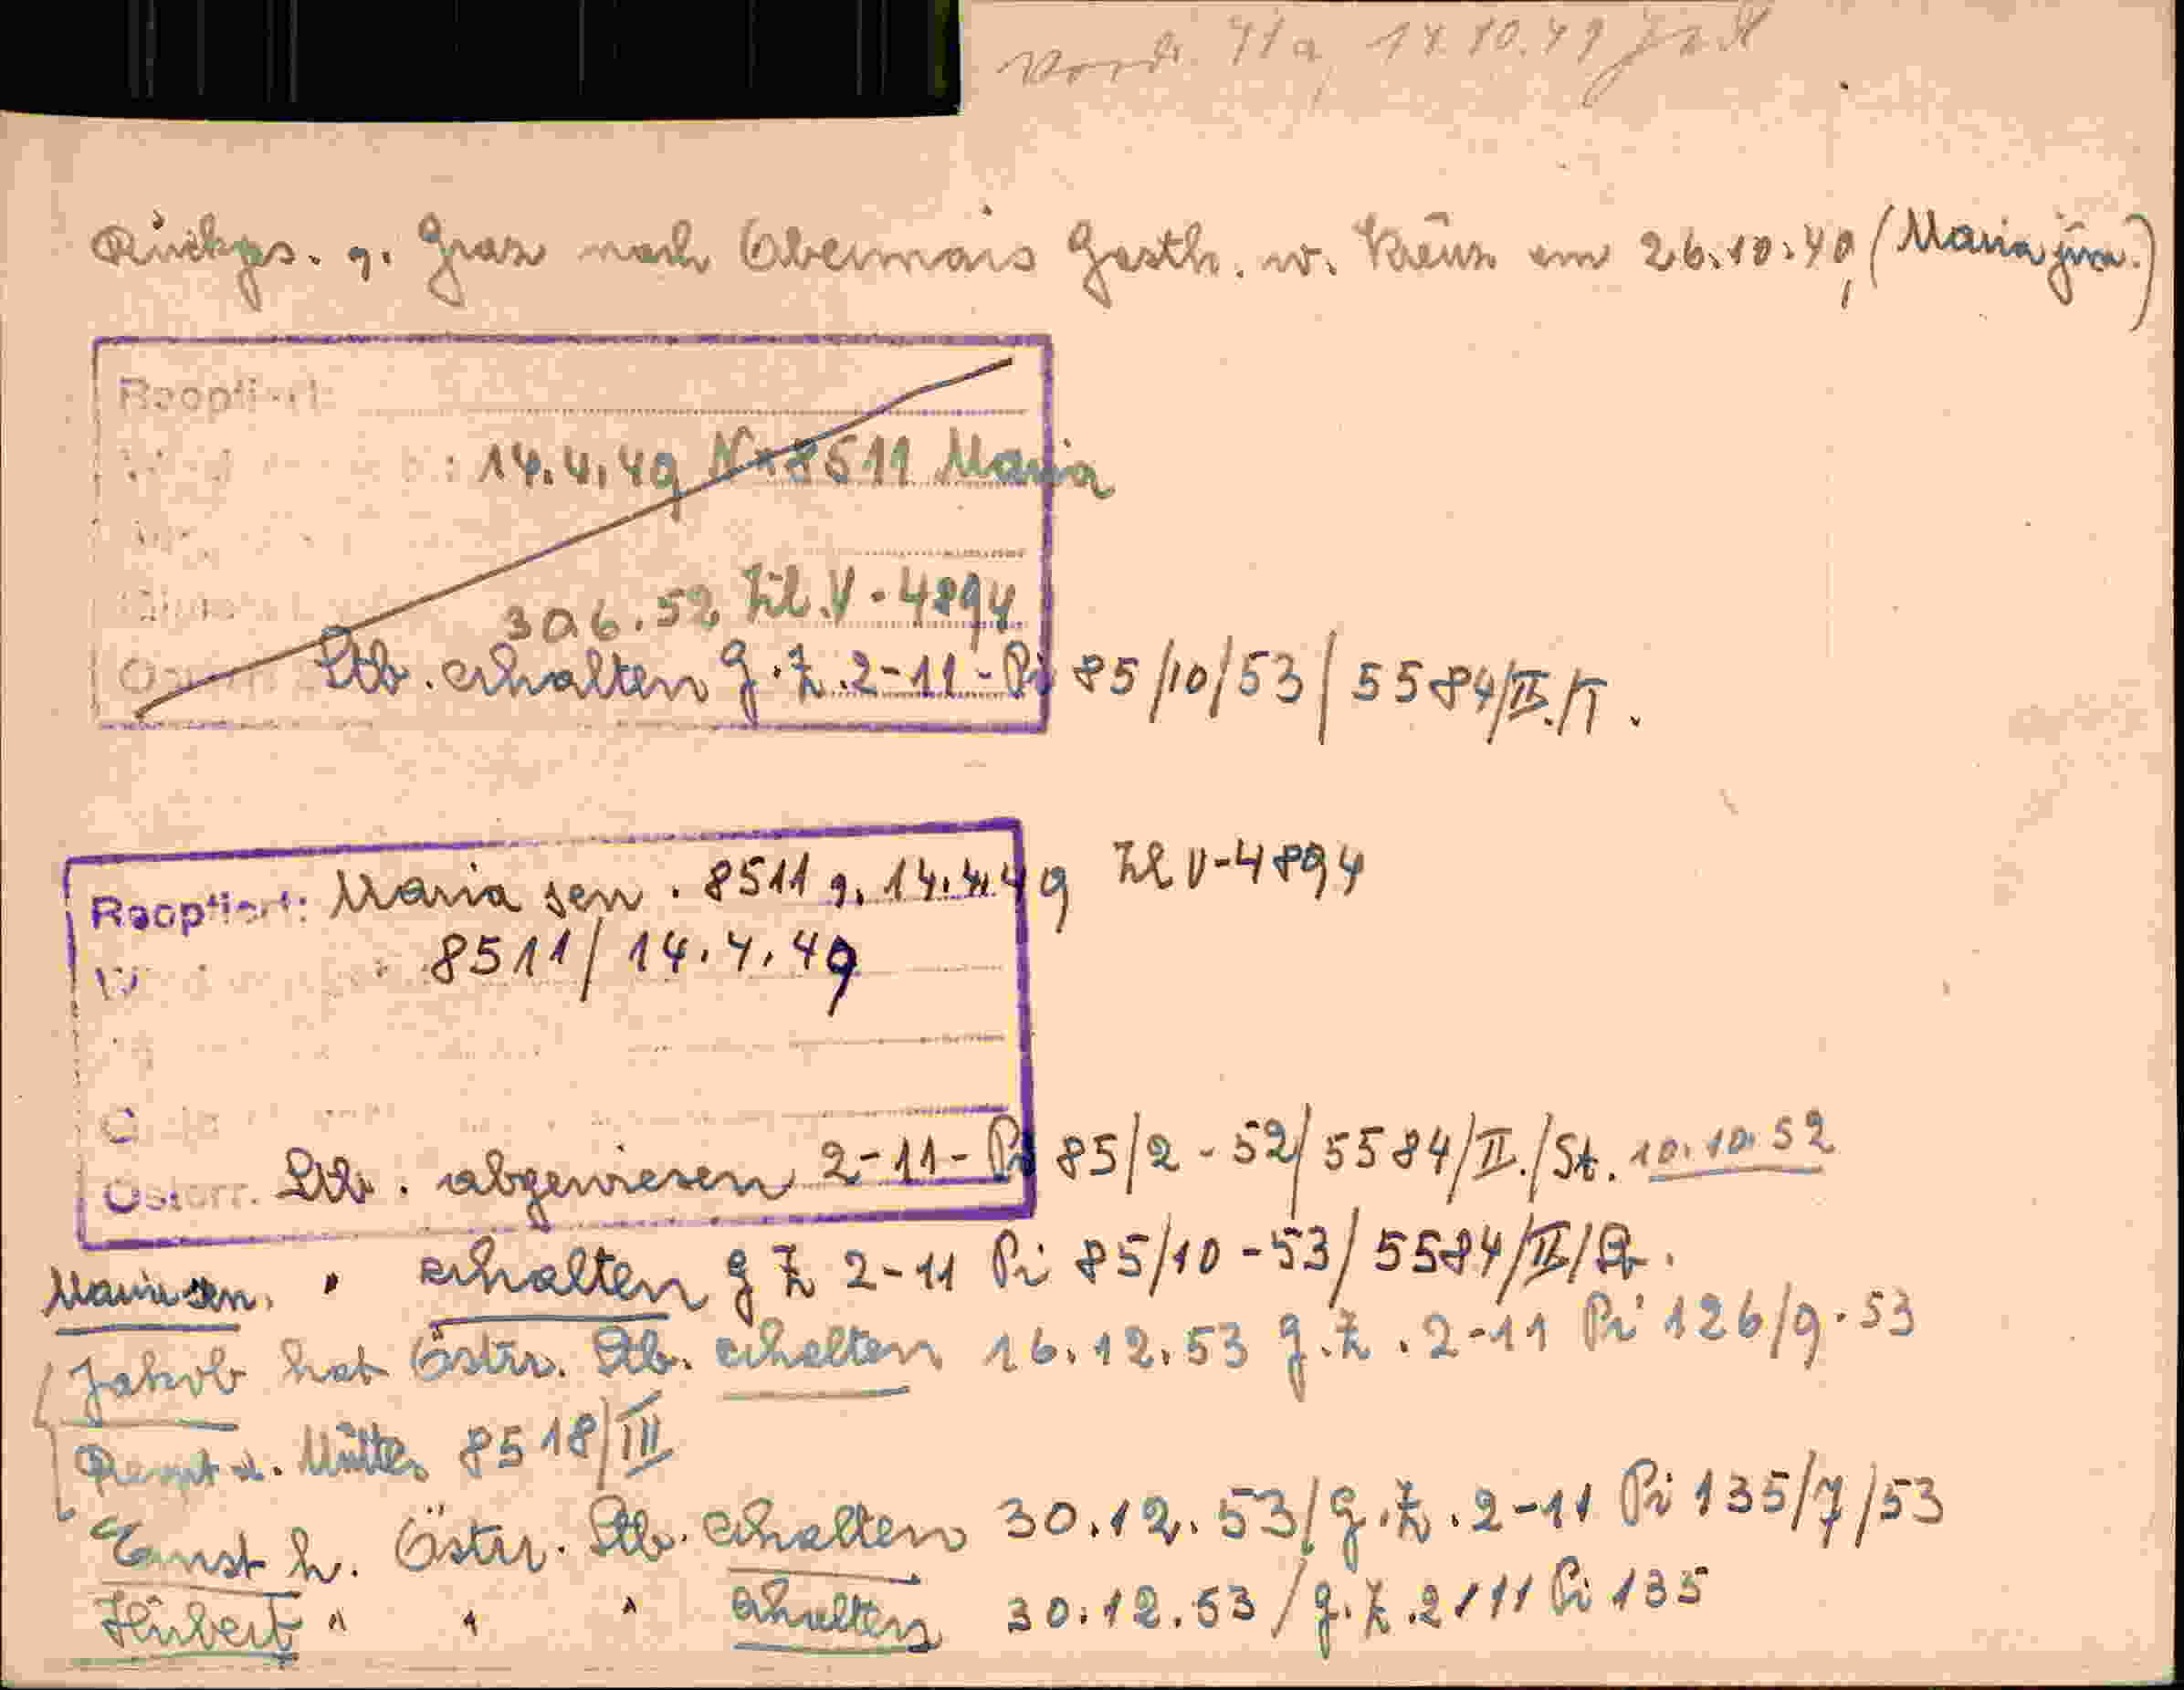 Vordr. 71a, 14.10.49
Rückges. g. Graz nach Obermais Gasth. w. Kreuz am 26.10.49 (Maria jun.)
Reoptiert:
: 14.4.49 Nr 8511 Maria
30.6.52 Zl. V-4894
Stb. erhalten g. Z. 2-11-Pi 85/10/53/5584/II./T.
Reoptiert: Maria sen. 8511 g. 14.4.49 Zl V-4894
8511/14.4.49
Österr. Stb. abgewiesen 2-11-Pi 85/2-52/5584/II./St. 10.10.52
Maria sen. " erhalten g Z 2-11 Pi 85/10-53/5584/II/
Jakob hat Östr. Stb. erhalten 16.12.53 g.Z. 2-11 Pi 126/9-53
Mutter 8518/III
Ernst h. Östr. Stb. erhalten 30.12.53/g.Z. 2-11 Pi 135/7/53
Hubert " " " erhalten 30.12.53/g.Z. 2/11 Pi 135